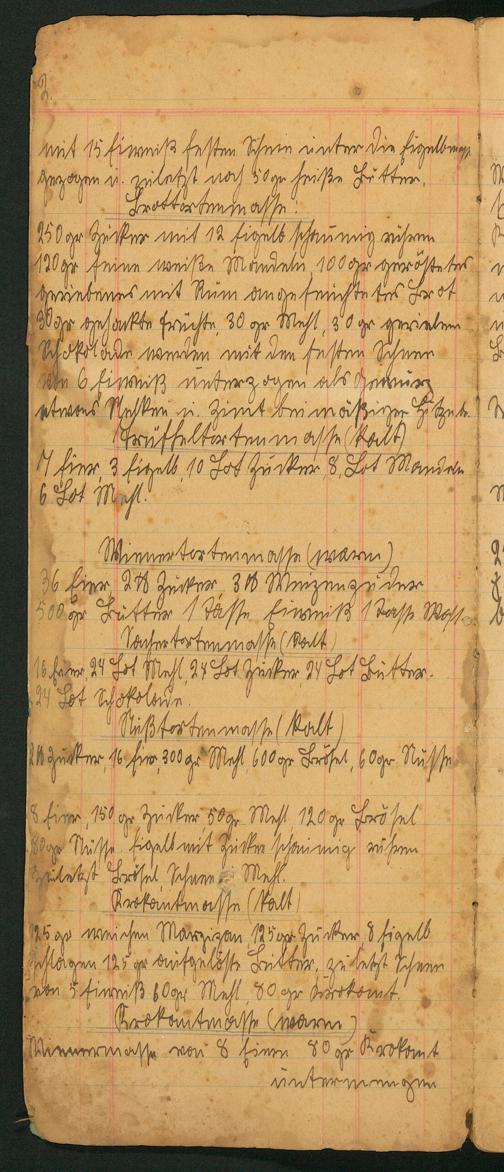 2.
mit 15 Eiweiß festen Schnee unter die Eigelbmasse
gezogen u. zuletzt noch 50 gr heiße Butter.
Brottortenmasse.
250 gr Zucker mit 12 Eigelb schaumig rühren
120 gr feine weiße Mandeln, 100 gr geröstetes
geriebenes mit Rum angefeuchtetes Brot
30 gr gehackte Früchte, 30 gr Mehl, 30 gr
Schokolade werden mit den festen Schnee
von 6 Eiweiß unterzogen als Gewürz
etwas Nelken u. Zimt bei mäßiger Hitze
Trüffeltortenmasse (kalt)
7 Eier 3 Eigelb, 10 Lot Zucker, 8 Lot Mandeln
6 Lot Mehl.
Wienertortenmasse (warm)
36 Eier, 2 ℔ Zucker 3 ℔ Weizenpuder
500 gr Butter 1 Tasse Eiweiß 1 Tasse
Sachertortenmasse (kalt)
16 Eier, 24 Lot Mehl, 24 Lot Zucker, 24 Lot Butter.
24 Lot Schokolade.
Nußtortenmasse (kalt)
Zucker, 16 Eier, 300 gr Mehl 600 gr Brösel, 60 gr. Nüsse
8 Eier, 150 gr Zucker 50 gr Mehl 120 gr Brösel
80 gr Nüsse. Eigelb mit Zucker schaumig rühren
zuletzt Brösel, Schnee Mehl.
Krokantmasse (kalt)
125 gr weichen Marzipan, 125 gr Zucker, 8 Eigelb
schlagen 125 gr aufgelöste Butter, zuletzt Schnee
von 5 Eiweiß 60 gr Mehl, 80 gr Krokant.
Krokantmasse (warm)
Wienermasse von 8 Eiern 80 gr Krokant
untermengen